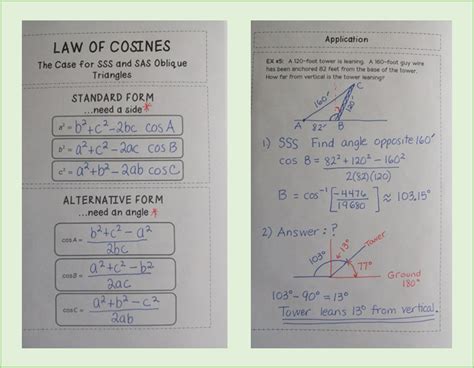 LAW OF COSINES
The Case for SSS and SAS Oblique
Triangles
STANDARD FORM
...need a side*
a² = b²+c²-2bc cosA
b² = a²+c²-2ac cosB
c² = a²+b²-2ab cosC
ALTERNATIVE FORM
...need an angle*
cosA = b²+c²-a² / 2bc
cosB = a²+c²-b² / 2ac
cosC = a²+b²-c² / 2ab
Application
EX #5: A 120-foot tower is leaning. A 160-foot guy wire
has been anchored 82 feet from the base of the tower.
How far from vertical is the tower leaning?
C
160'
A 82' B
1) SSS Find angle opposite 160'
cos B = 82²+120²-160² / 2(82)(120)
B = cos⁻¹[-4476 / 19680] ≈ 103.15°
2) Answer: ?
103° 13° Tower
77°
Ground
180°
103°-90° = 13°
Tower leans 13° from vertical.